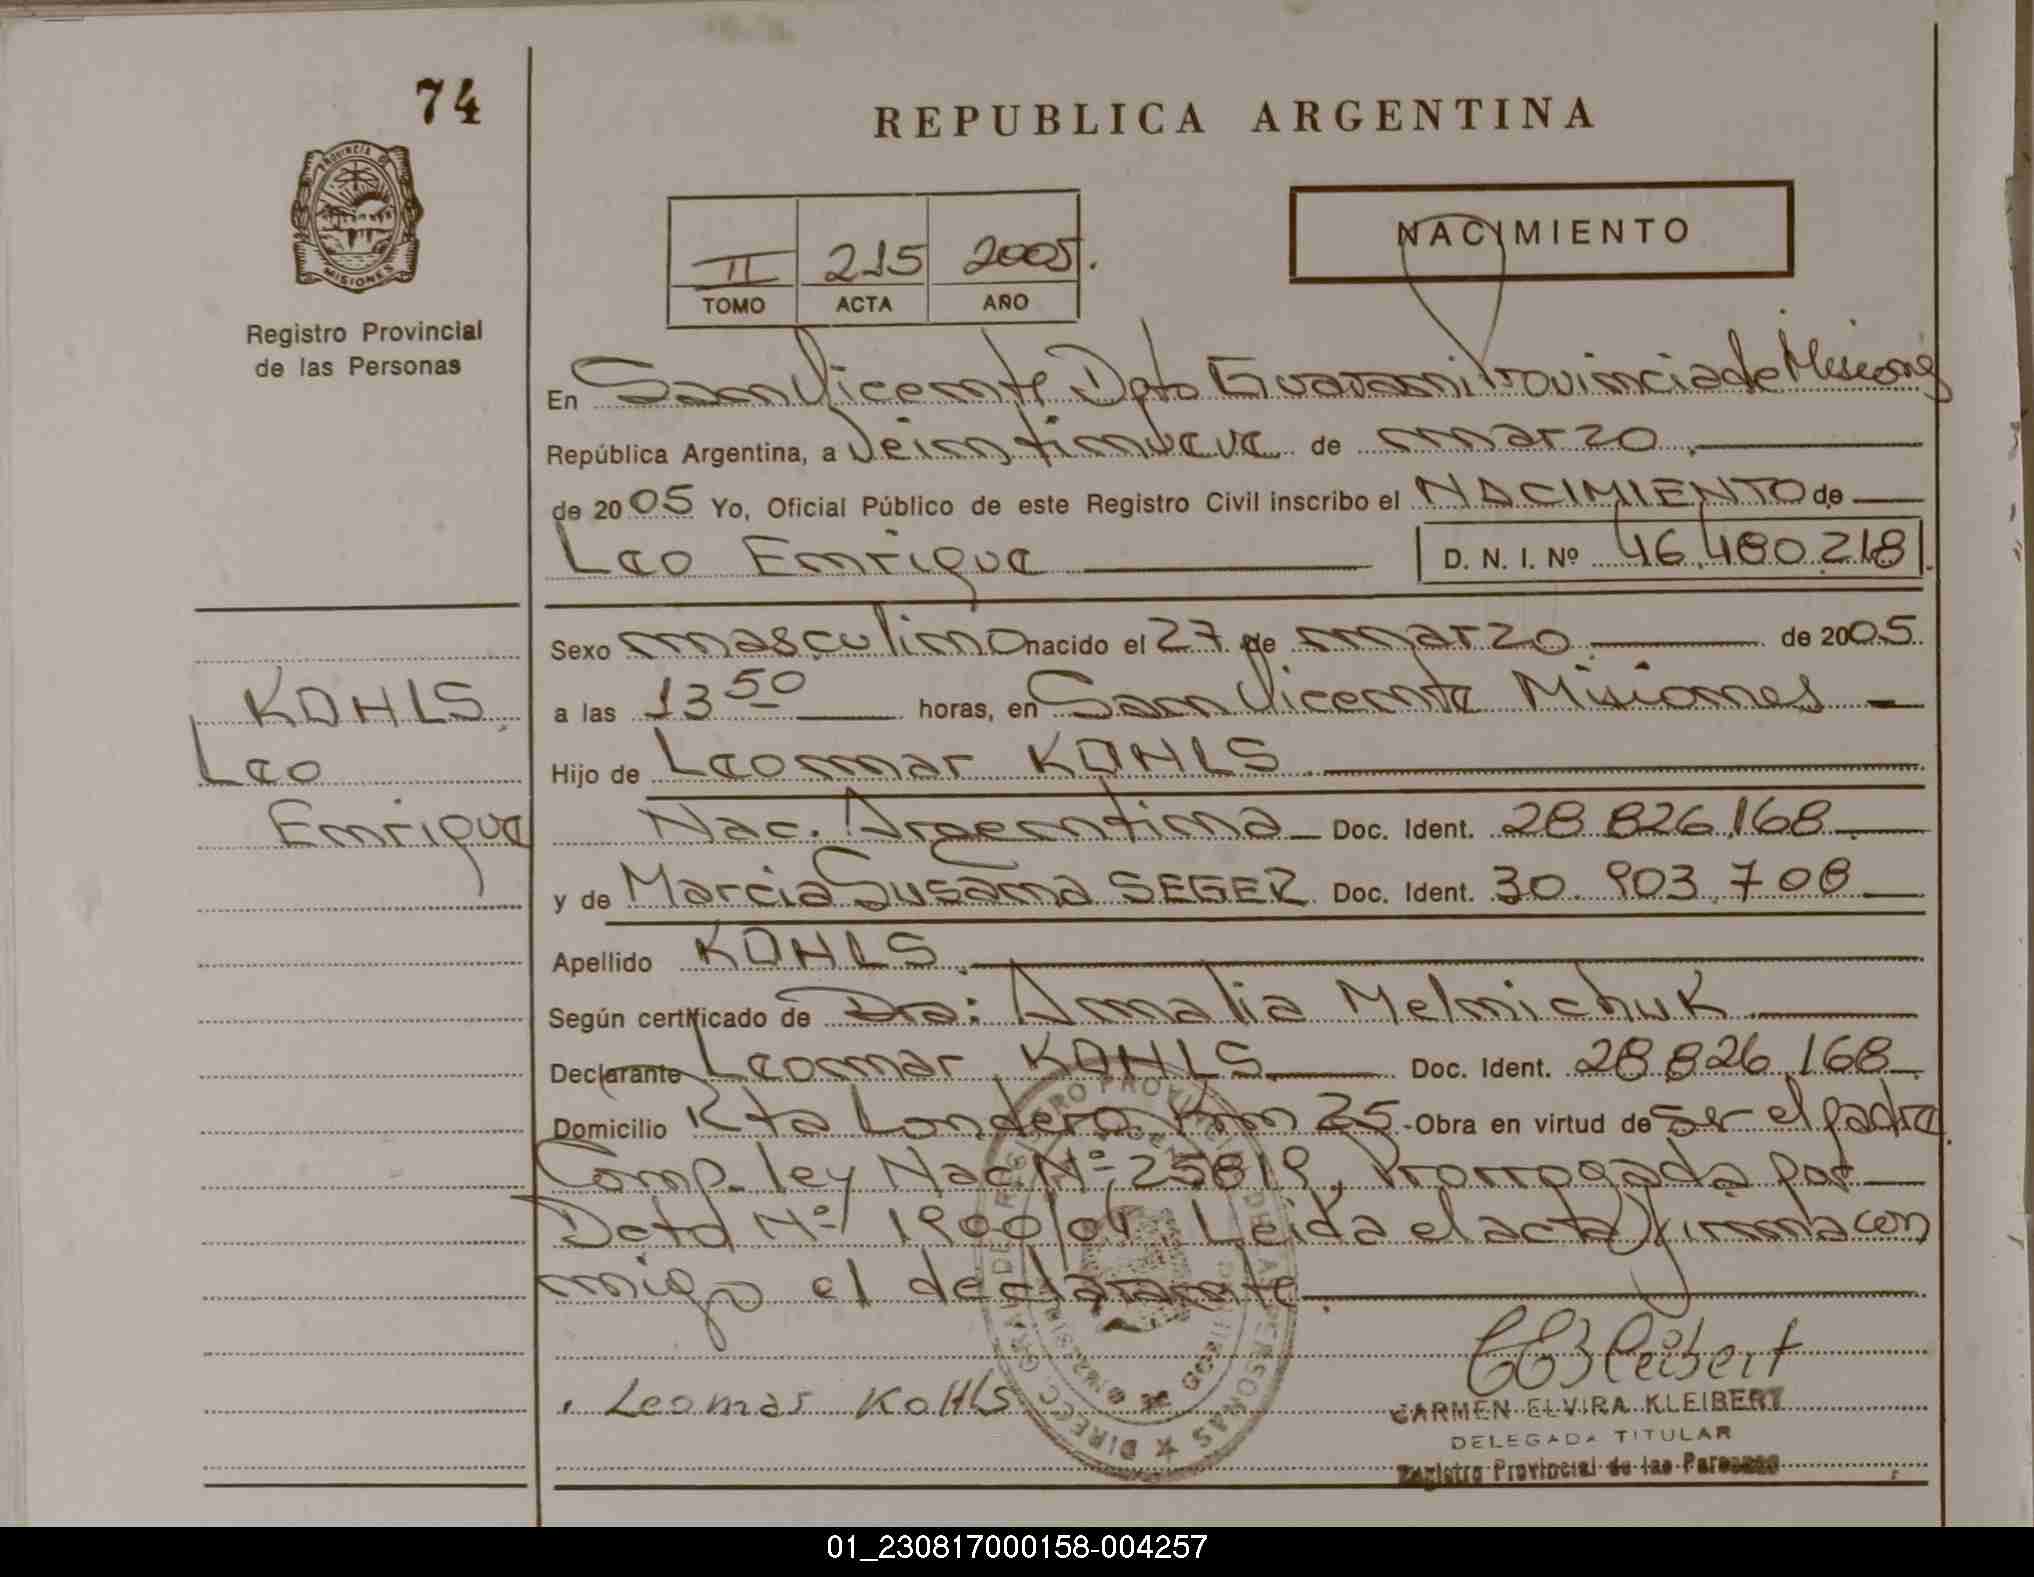 74
REPUBLICA ARGENTINA
PROVINCIA DE
MISIONES
Registro Provincial
de las Personas
II 215 2005.
TOMO ACTA AÑO
NACIMIENTO
En San Vicente Dpto Guarani Provincia de Misiones
República Argentina, a Veintinueve de marzo
de 2005 Yo, Oficial Público de este Registro Civil inscribo el NACIMIENTO de
Leo Enrique D. N. I. Nº 46.480.218
Sexo masculino nacido el 27 de marzo de 2005.
a las 13 50 horas, en San Vicente Misiones
Hijo de Leomar KOHLS
Nac. Argentina Doc. Ident. 28.826.168
y de Marcia Susana SEGER Doc. Ident. 30.903.708
Apellido KOHLS
Según certificado de Dra: Amalia Melnichuk
Declarante Leomar KOHLS Doc. Ident. 28.826.168
Domicilio Rta Londero Km 35 - Obra en virtud de ser el padre.
Comp. ley Nac. Nº 25819, Prorrogada por
Dcto Nº 1900/04. Leida el acta firma con
migo el declarante.
Leomar KoHLS
KOHLS
Leo
Enrique
CEKleibert
CARMEN ELVIRA KLEIBERT
DELEGADA TITULAR
Registro Provincial de las Personas
DIRECC. GRAL. DE REGISTRO PROVINCIAL DE LAS PERSONAS
01_230817000158-004257